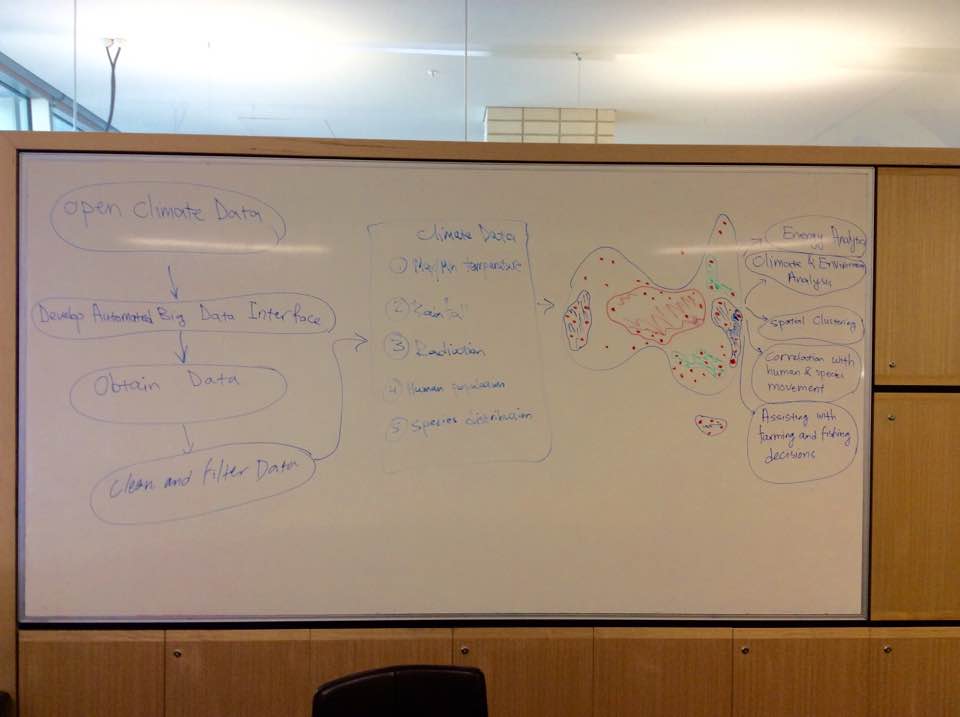 Open Climate Data
Develop Automated Big Data Interface
Obtain Data
Clean and Filter Data
Climate Data
① Max/Min temperature
② Rainfall
③ Radiation
④ Human population
⑤ Species distribution
Energy Analytics
Climate & Environment
Analysis
Spatial Clustering
Correlation with
human & species
movement
Assisting with
farming and fishing
decisions